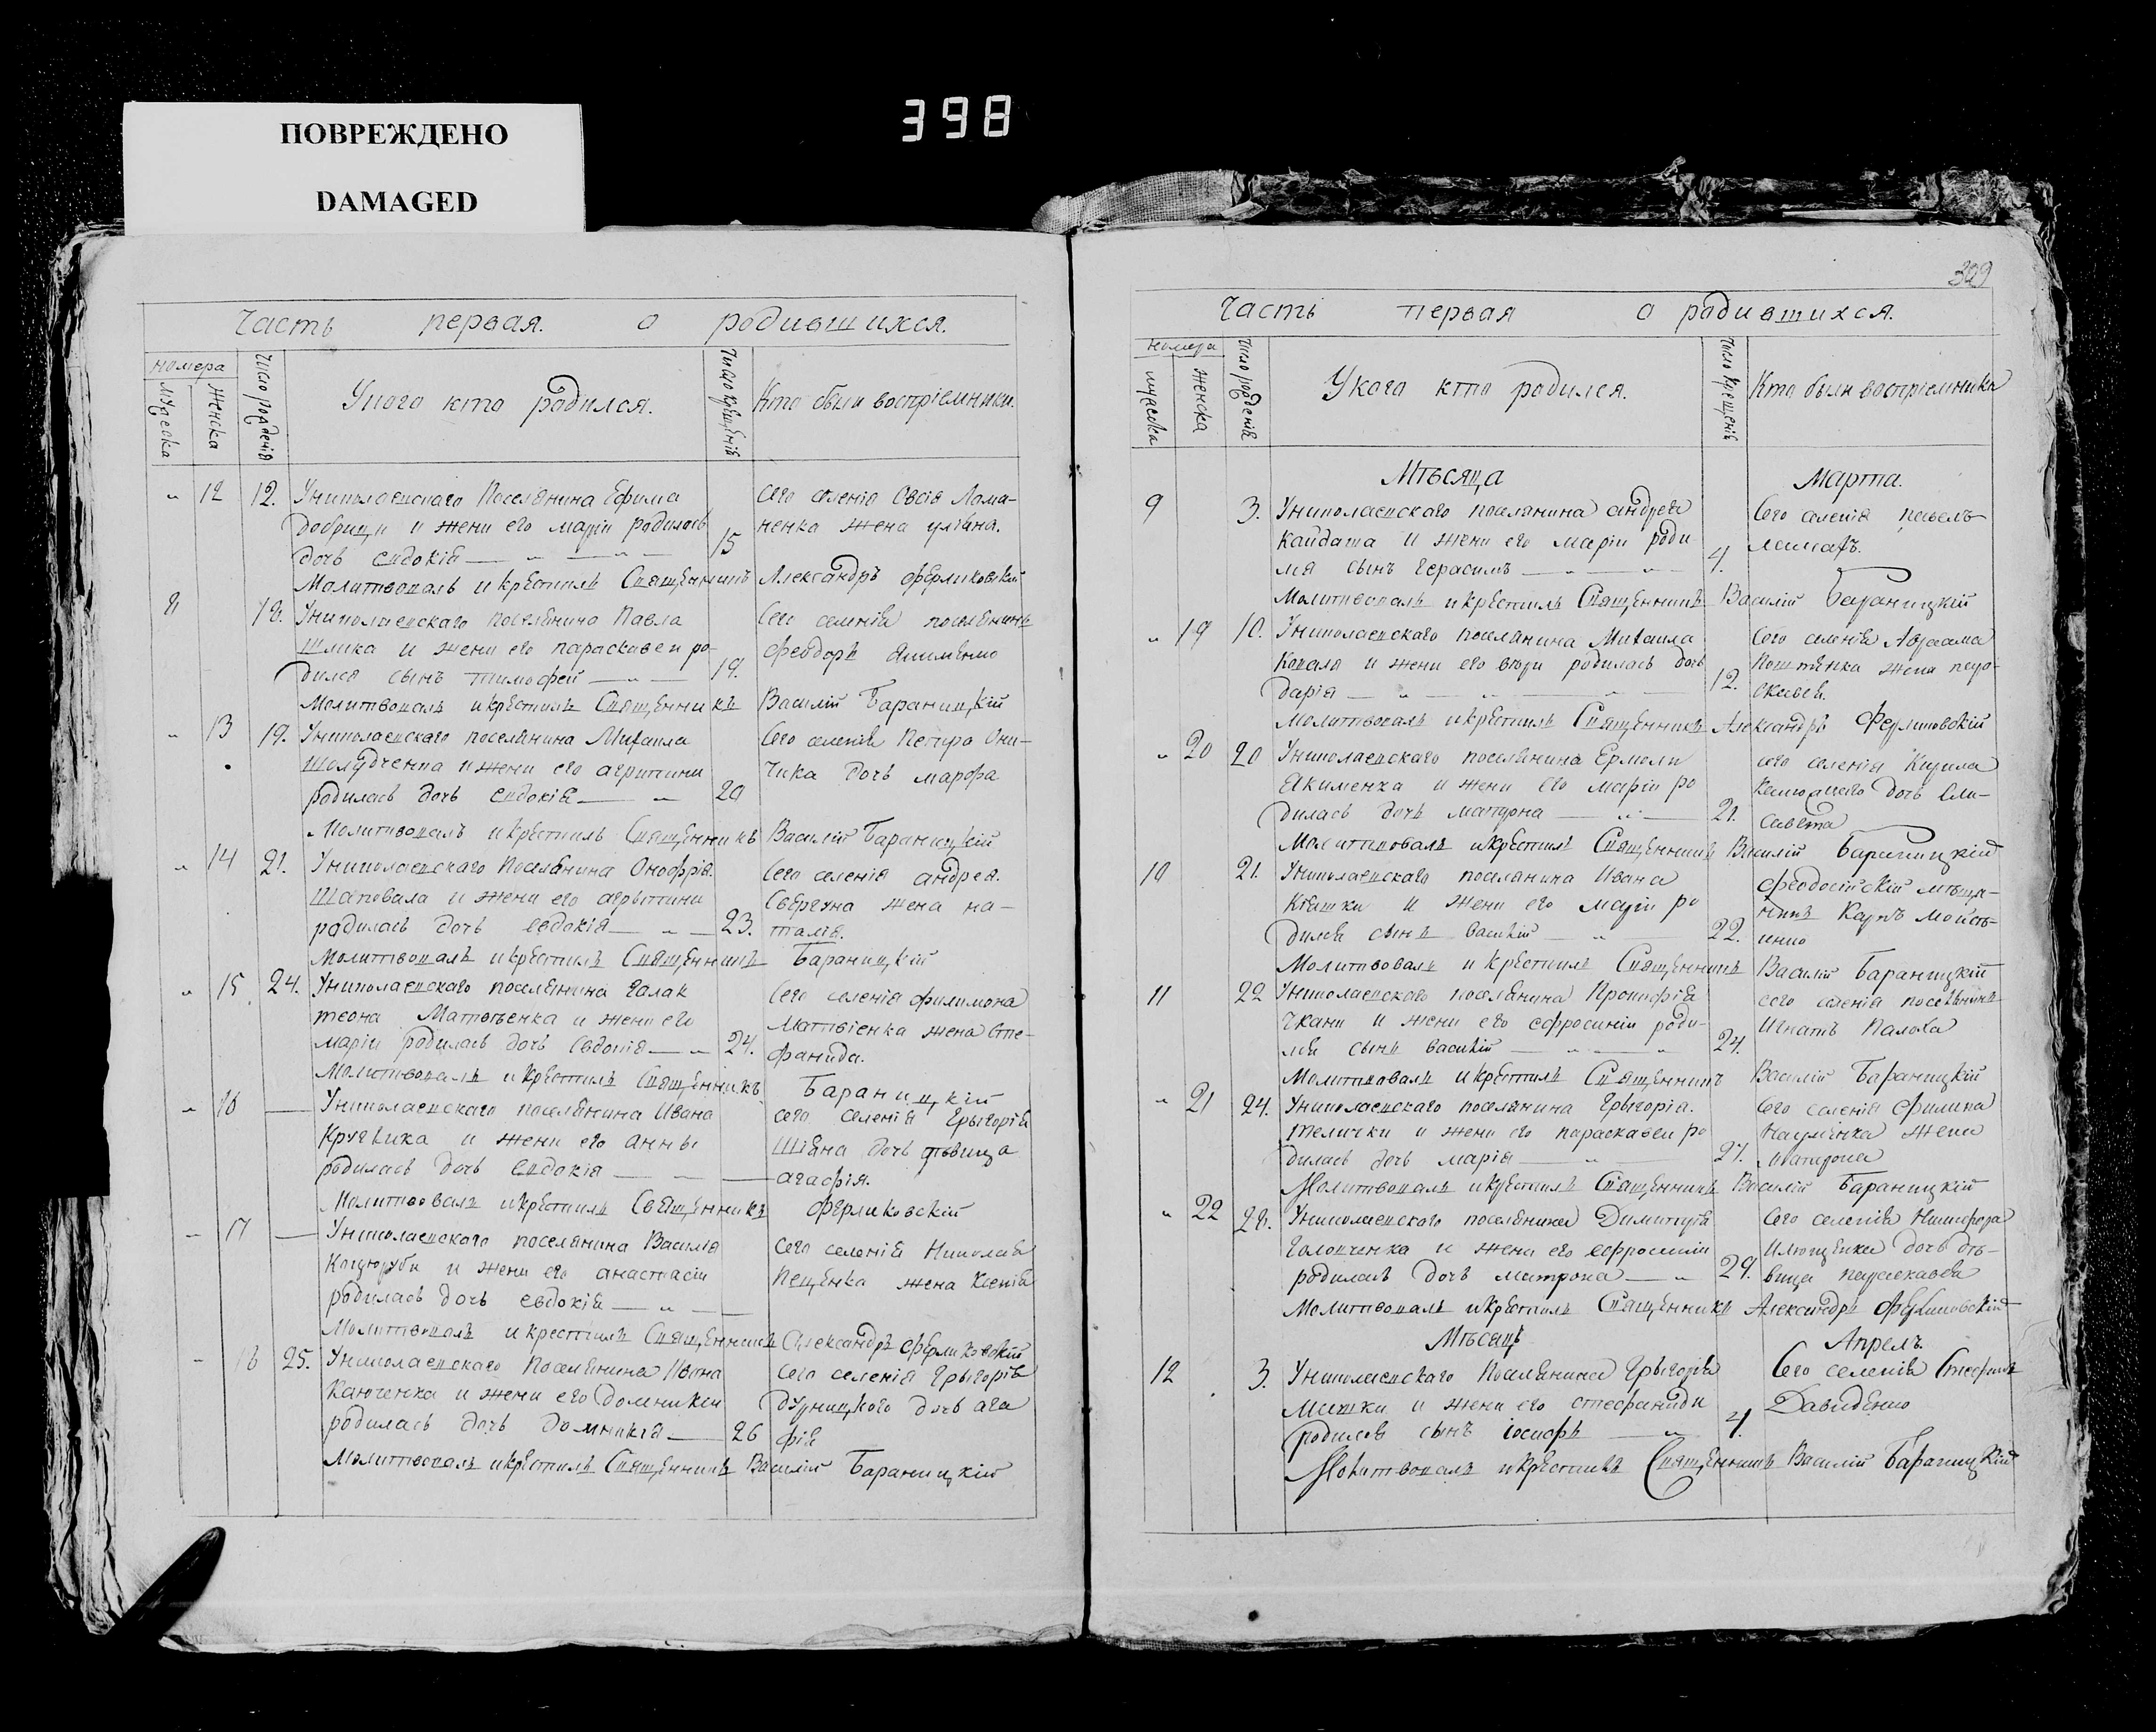 ПОВРЕЖДЕНО
DAMAGED
398
Часть первая. о родившихся.
номера
мужеска
женска
число рожденія
У кого кто родился.
число крещенія
Кто были воспріемники.
" 12 12. У николаевского поселянина Ефима
Добрици и жени его маріи родилась
дочь евдокія 15
сего селенія Овсія Лома-
ненка жена уліана.
Молитвовалъ и крестилъ Священникъ Александръ Ферликовскій
8 18. У николаевского поселянина Павла
Шлика и жени его параскавеи ро-
дился сынъ тимофей 19.
Сего селенія поселянинъ
феодоръ Якименко
Молитвовалъ и крестилъ Священникъ Василій Бараницкій
" 13 19. У николаевского поселянина Михаила
Шолудченка и жени его агрипини
родилась дочь евдокія 20
Сего селенія Петра Они-
чика дочь марфа
Молитвовалъ и крестилъ Священникъ Василій Бараницкій
" 14 21. У николаевского Поселянина Онофрія.
Шаповала и жени его агрыпини
радилась дочь евдокія 23.
Сего селенія андрея.
Свергуна жена на-
талія.
Молитвовалъ и крестилъ Священникъ Бараницкій
" 15 24. У николаевского поселянина Галак
теона Матвѣенка и жени его
маріи родилась дочь Евдокія 24.
Сего селенія филимона
Матвіенка жена Сте-
фанида.
Молитвовалъ и крестилъ Священникъ Бараницкій
" 16 — У николаевского поселянина Ивана
Кругвика и жени его Анны
родилась дочь Евдокія
сего селенія Грыгорія
Шіяна дочь дѣвица
агафія.
Молитвовалъ и крестилъ Священникъ Ферликовскій
17 — У николаевского поселянина Василія
Коцюруби и жени его анастасіи
родилась дочь евдокія
Сего селенія Николая
Пещенка жена Ксенія
Молитвовалъ и крестилъ Священникъ Александръ Ферликовскій
18 25. У николаевского Поселянина Ивана
Канченка и жени его Домникіи
родилась дочь Домникія 26
Сего селенія Грыгорія
Дурницкого дочь ага
фія
Молитвовалъ и крестилъ Священникъ Василій Бараницкій
309
Часть первая о родившихся.
номера
мужеска
женска
число рожденія
У кого кто родился.
число крещенія
Кто были воспріемники
Мѣсяца Марта.
9 3. У николаевского поселянина андрея
Кайдаша и жени его маріи роди
лся сынъ Герасимъ 4.
Сего селенія павелъ
Молитвовалъ и крестилъ Священникъ Василій Бараницкій
" 19 10. У николаевского поселянина Михаила
Коваля и жени его родилась дочь
дарія 12.
Сего селенія Авраама
жена пара-
скавея.
Молитвовалъ и крестилъ Священникъ Александръ Ферликовскій
" 20 20 У николаевского поселянина Ермоли
Якименка и жени его маріи ро
дилась дочь матрона 21.
сего селенія Кирила
дочь Ели-
савета
Молитвовалъ и крестилъ Священникъ Василій Бараницкій
10 21. У николаевского поселянина Ивана
Кіяшки и жени его маріи ро
дился сынъ василій 22.
феодосійскій мѣща-
нинъ Карпъ Мойсѣ-
енко
Молитвовалъ и крестилъ Священникъ Василій Бараницкій
11 22 У николаевского поселянина Прокофія
Чкани и жени его ефросиніи роди-
лся сынъ василій 24.
сего селенія поселянинъ
Игнатъ Палоха
Молитвовалъ и крестилъ Священникъ Василій Бараницкій
" 21 24. У николаевского поселянина Грыгорія.
Телички и жени его параскавеи ро
дилась дочь марія 27.
Сего селенія Филипа
Науменка жена
Матрона
Молитвовалъ и крестилъ Священникъ Василій Бараницкій
" 22 28. У николаевского поселянина Димитрія
Голопченка и жени его ефросиніи
родилась дочь матрона 29.
Сего селенія Никифора
Илющенка дочь дѣ-
вица параскавея
Молитвовалъ и крестилъ Священникъ Александръ Ферликовскій
Мѣсяцъ Апрель.
12 3. У николаевского Поселянина Грыгорія
Мишки и жени его стефаниди
родился сынъ іосифъ 4.
Сего селенія Стефанъ
Давиденко
Молитвовалъ и крестилъ Священникъ Василій Бараницкій